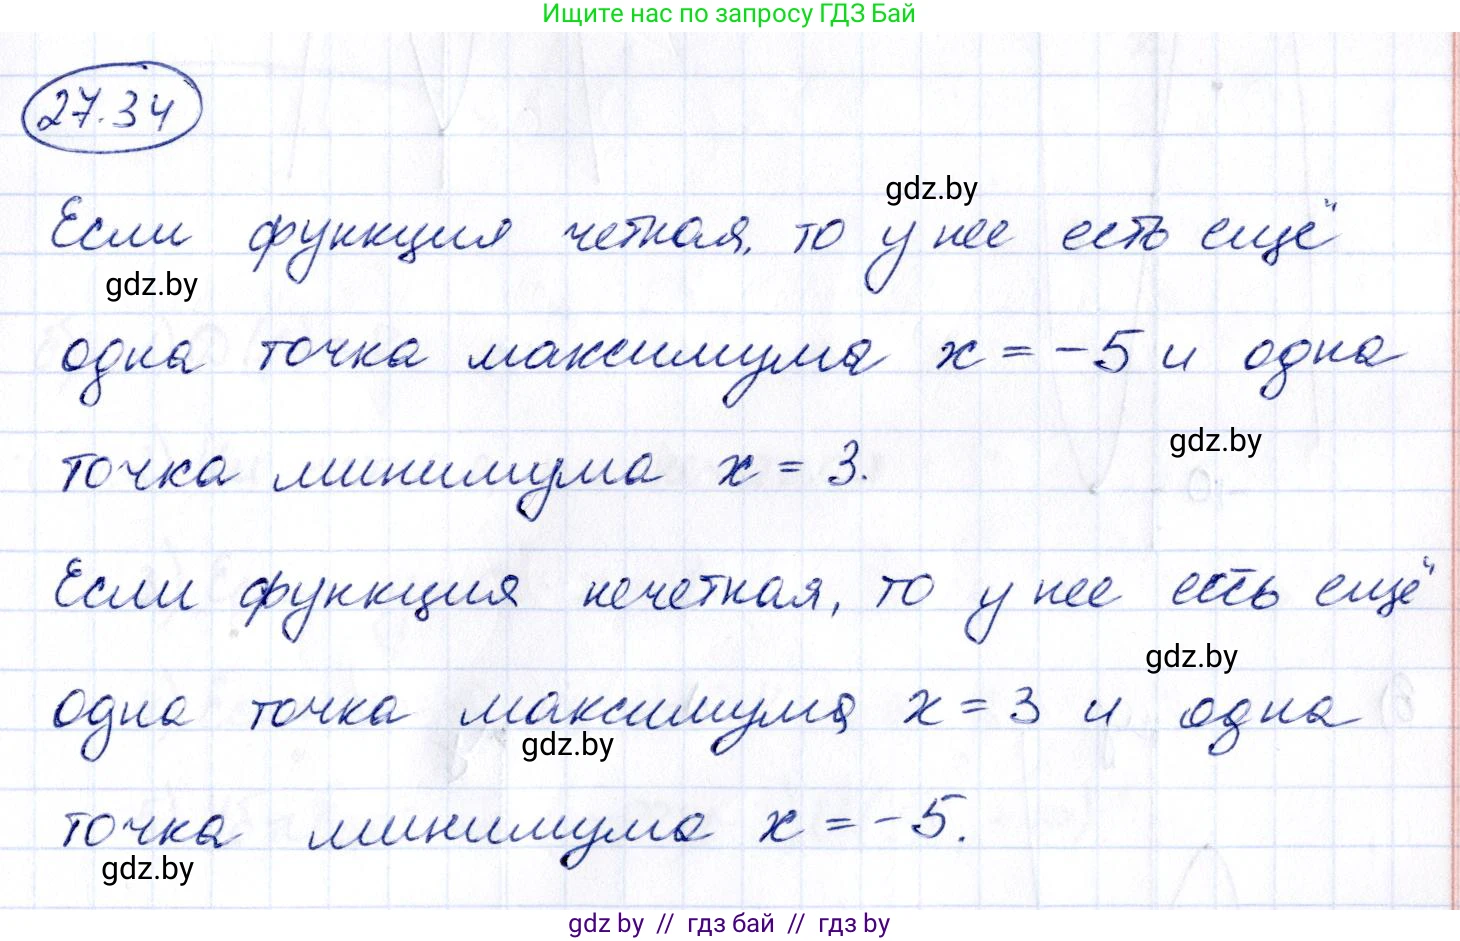 Ищите нас по запросу ГДЗ Бай
27.34
gdz.by
Если функция четная, то у нее есть ещё
gdz.by
одна точка максимума x = -5 и одна
gdz.by
точка минимума x = 3.
Если функция нечетная, то у нее есть ещё
gdz.by
одна точка максимума x = 3 и одна
gdz.by
точка минимума x = -5.
gdz.by
gdz by // гдз бай // гдз by